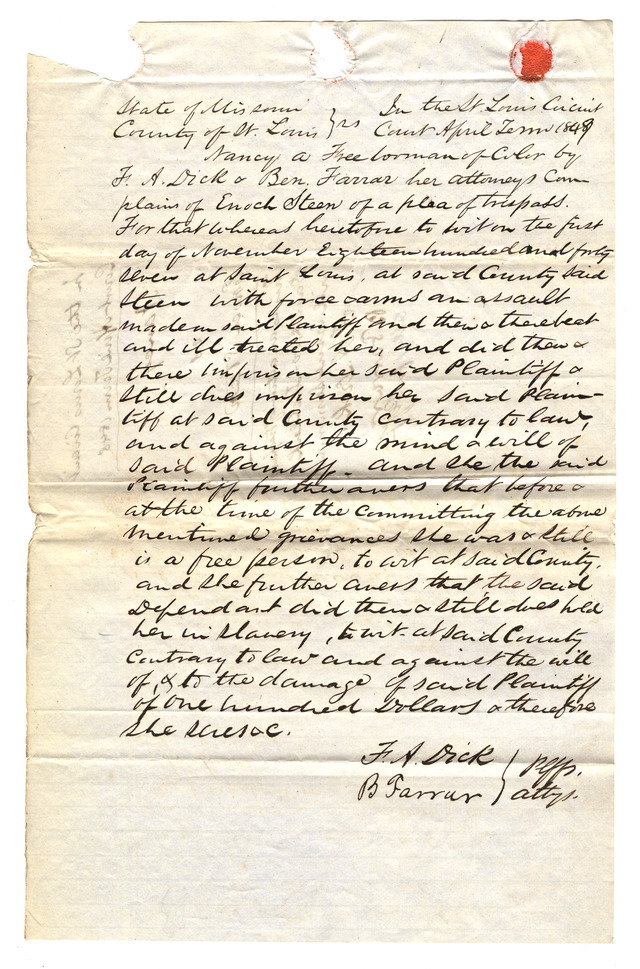 State of Missouri } ss In the St. Louis Circuit
County of St. Louis Court April Term 1848
Nancy a Free woman of Color by
F. A. Dick & Ben. Farrar her attorneys Com
plains of Enoch Steen of a plea of trespass.
For that whereas heretofore to wit on the first
day of November Eighteen hundred and forty
seven at Saint Louis, at said County said
Steen with force & arms an assault
made on said Plaintiff and then & there beat
and ill treated her, and did then &
there imprison her said Plaintiff &
still does imprison her said Plain-
tiff at said County contrary to law,
and against the mind & will of
said Plaintiff - and she the said
Plaintiff further avers that before &
at the time of the committing the above
mentioned grievances she was & still
is a free person, to wit at said County.
and she further avers that the said
Defendant did then & still does hold
her in slavery, to wit at said County
contrary to law and against the will
of, & to the damage of said Plaintiff
of One hundred Dollars & therefore
she sues &c.
F. A. Dick } Plffs.
B Farrar attys.